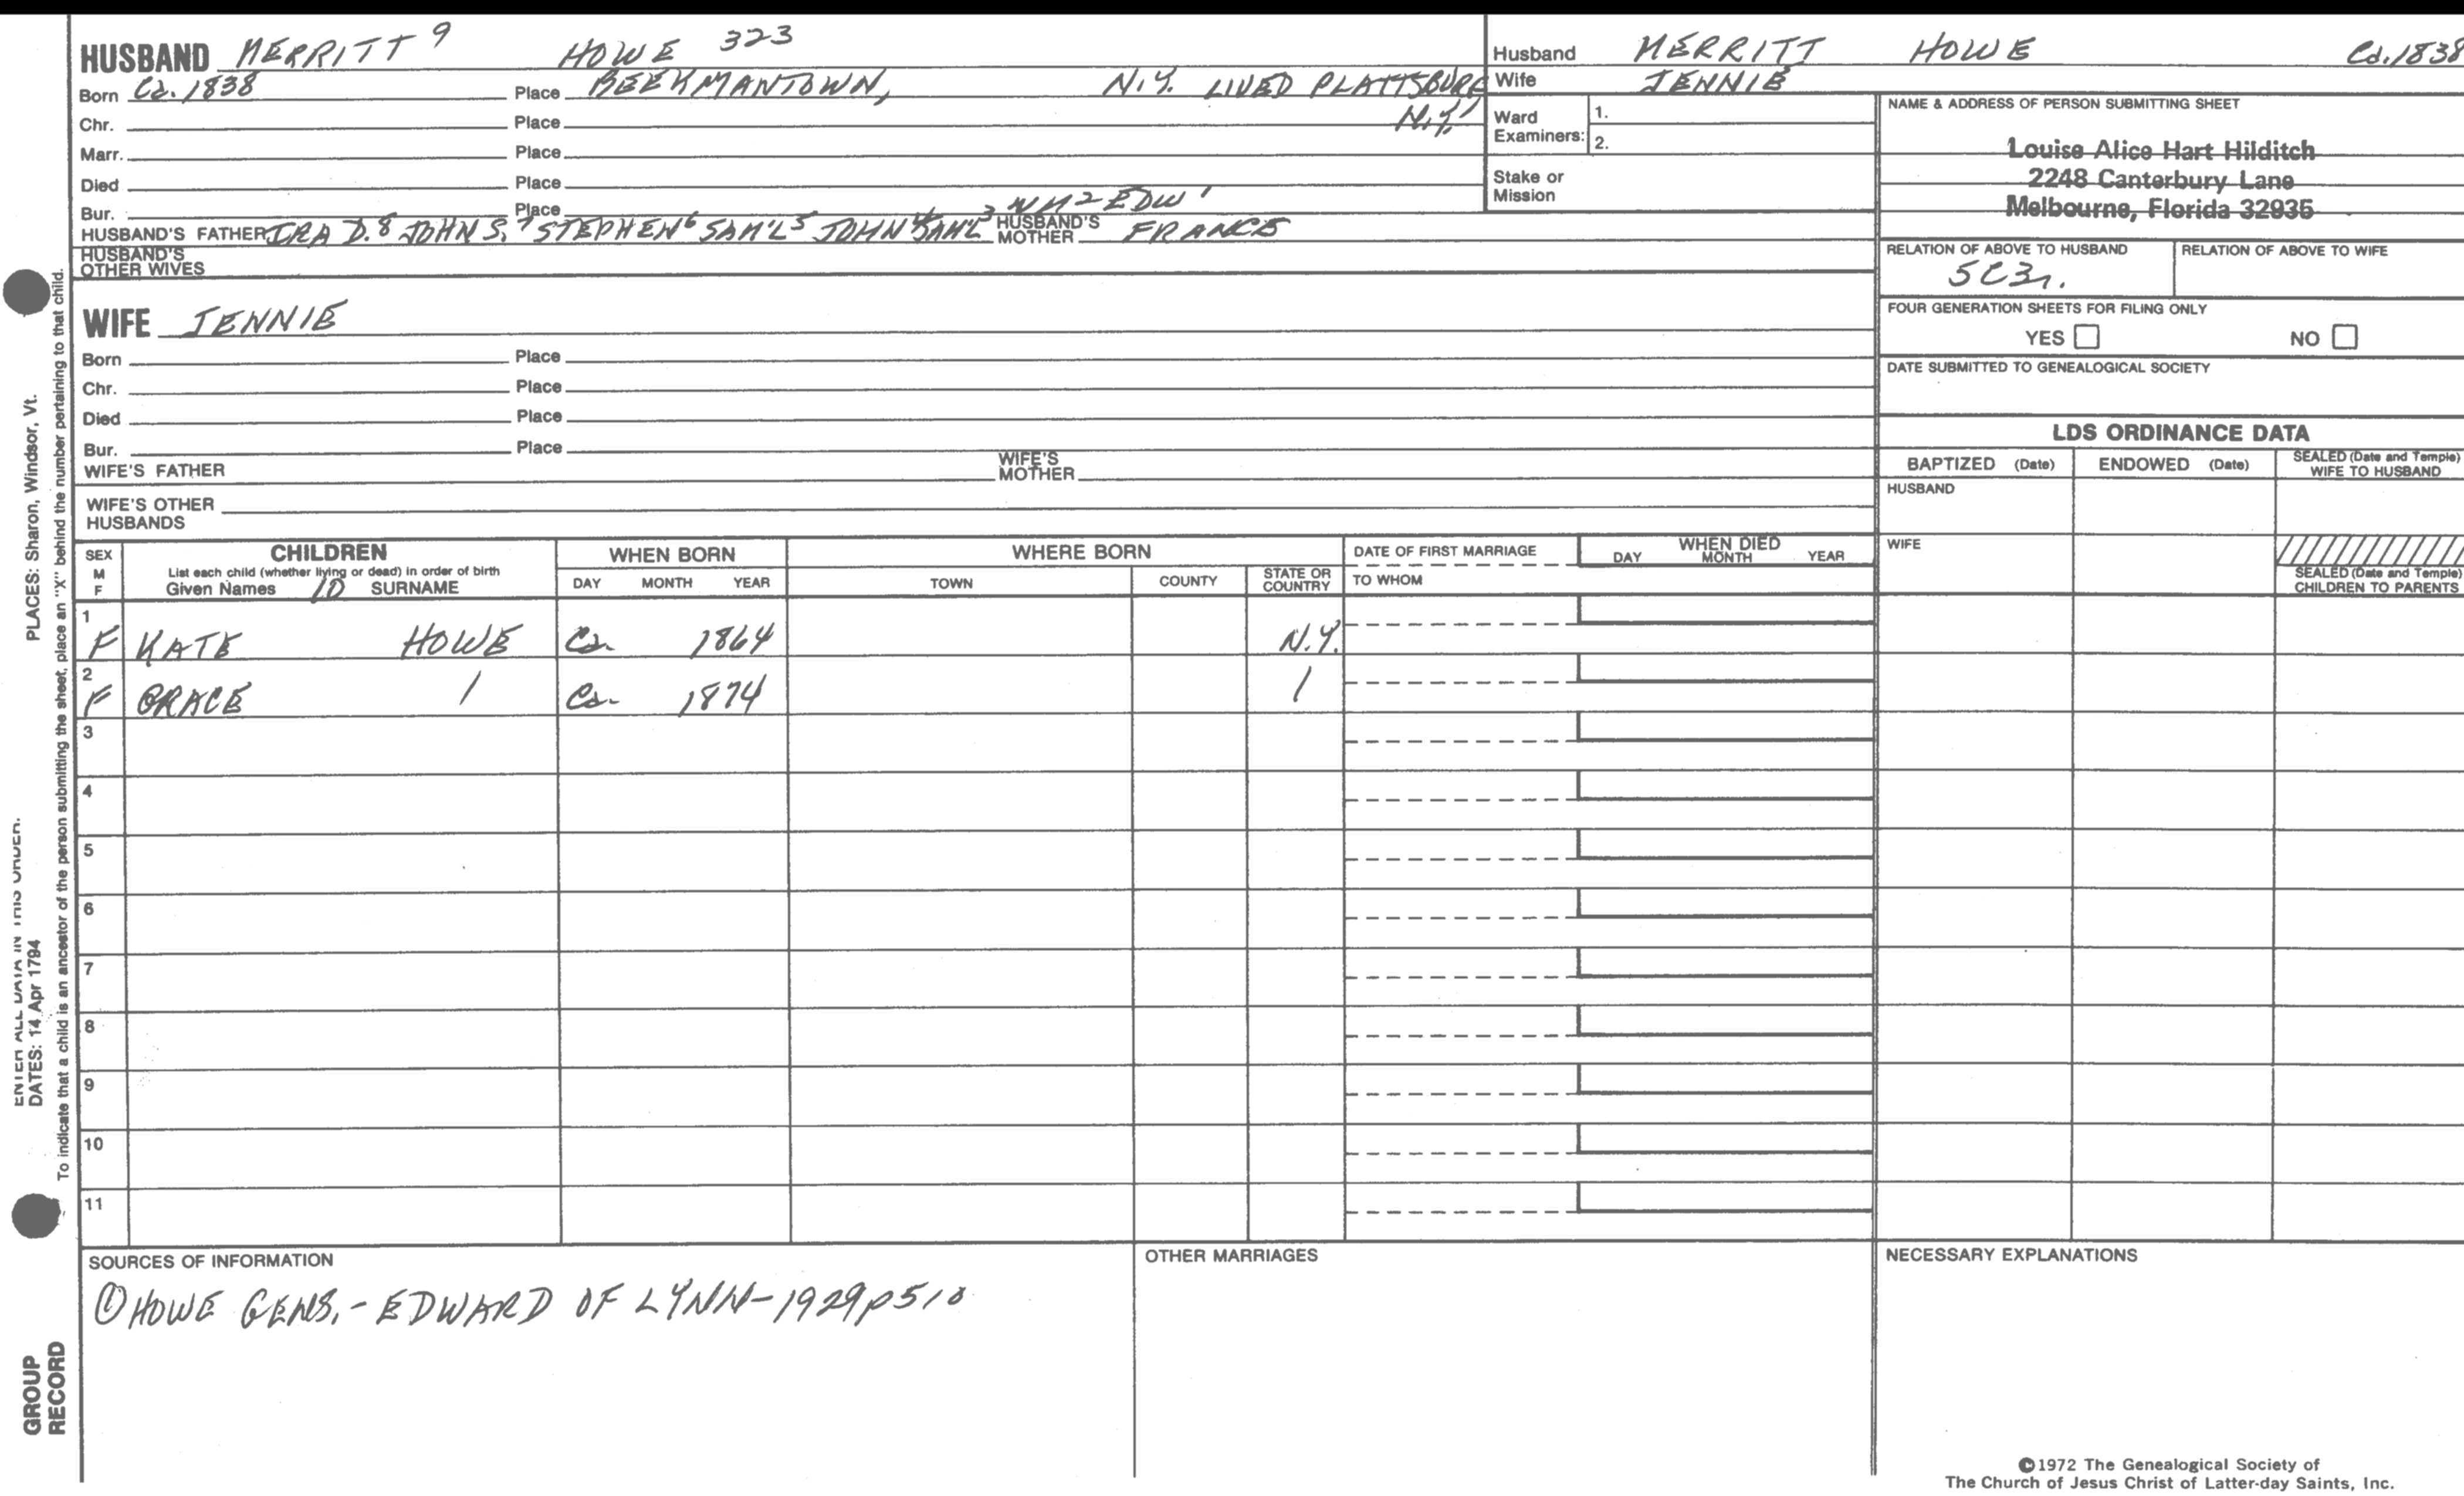 HUSBAND MERRITT 9 HOWE 323
Born Ca. 1838 Place BEEKMANTOWN, N.Y. LIVED PLATTSBURG N.Y.
Chr. Place
Marr. Place
Died Place
Bur. Place
HUSBAND'S FATHER IRA D.8 JOHN S.7 STEPHEN6 SAM'L5 JOHN4 SAML3 WM2 EDW1 HUSBAND'S MOTHER FRANCE
HUSBAND'S OTHER WIVES
WIFE JENNIE
Born Place
Chr. Place
Died Place
Bur. Place
WIFE'S FATHER WIFE'S MOTHER
WIFE'S OTHER HUSBANDS
Husband MERRITT HOWE Ca. 1838
Wife JENNIE
Ward Examiners: 1.
2.
Stake or Mission
NAME & ADDRESS OF PERSON SUBMITTING SHEET
Louise Alice Hart Hilditch
2248 Canterbury Lane
Melbourne, Florida 32935
RELATION OF ABOVE TO HUSBAND RELATION OF ABOVE TO WIFE
5C3r.
FOUR GENERATION SHEETS FOR FILING ONLY
YES NO
DATE SUBMITTED TO GENEALOGICAL SOCIETY
LDS ORDINANCE DATA
BAPTIZED (Date) ENDOWED (Date) SEALED (Date and Temple) WIFE TO HUSBAND
HUSBAND
WIFE
SEALED (Date and Temple) CHILDREN TO PARENTS
SEX M F
CHILDREN
List each child (whether living or dead) in order of birth
Given Names 10 SURNAME
WHEN BORN
DAY MONTH YEAR
WHERE BORN
TOWN COUNTY STATE OR COUNTRY
DATE OF FIRST MARRIAGE
TO WHOM
WHEN DIED
DAY MONTH YEAR
1
F KATE HOWE Ca. 1864 N.Y.
2
F GRACE / Ca. 1874 /
3
4
5
6
7
8
9
10
11
SOURCES OF INFORMATION
① HOWE GENS. - EDWARD OF LYNN - 1929 p 510
OTHER MARRIAGES
NECESSARY EXPLANATIONS
©1972 The Genealogical Society of
The Church of Jesus Christ of Latter-day Saints, Inc.
ENTER ALL DATA IN THIS ORDER.
DATES: 14 Apr 1794
PLACES: Sharon, Windsor, Vt.
To indicate that a child is an ancestor of the person submitting the sheet, place an "X" behind the number pertaining to that child.
GROUP
RECORD